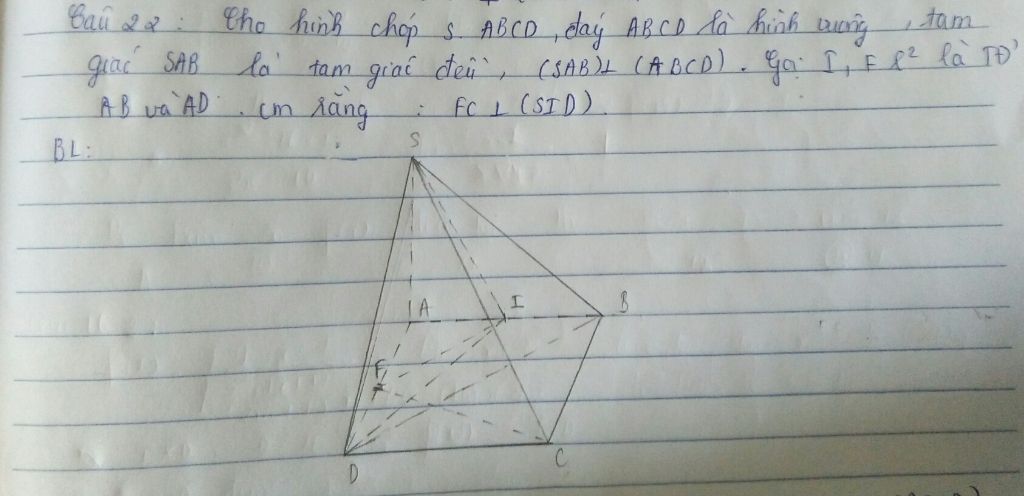 Câu 22 : Cho hình chóp S. ABCD , đáy ABCD là hình vuông , tam
giác SAB là tam giác đều , (SAB) ⊥ (ABCD) . Gọi I, F l² là TĐ
AB và AD . cm rằng : FC ⊥ (SID)
BL:
S
A I B
F
D C